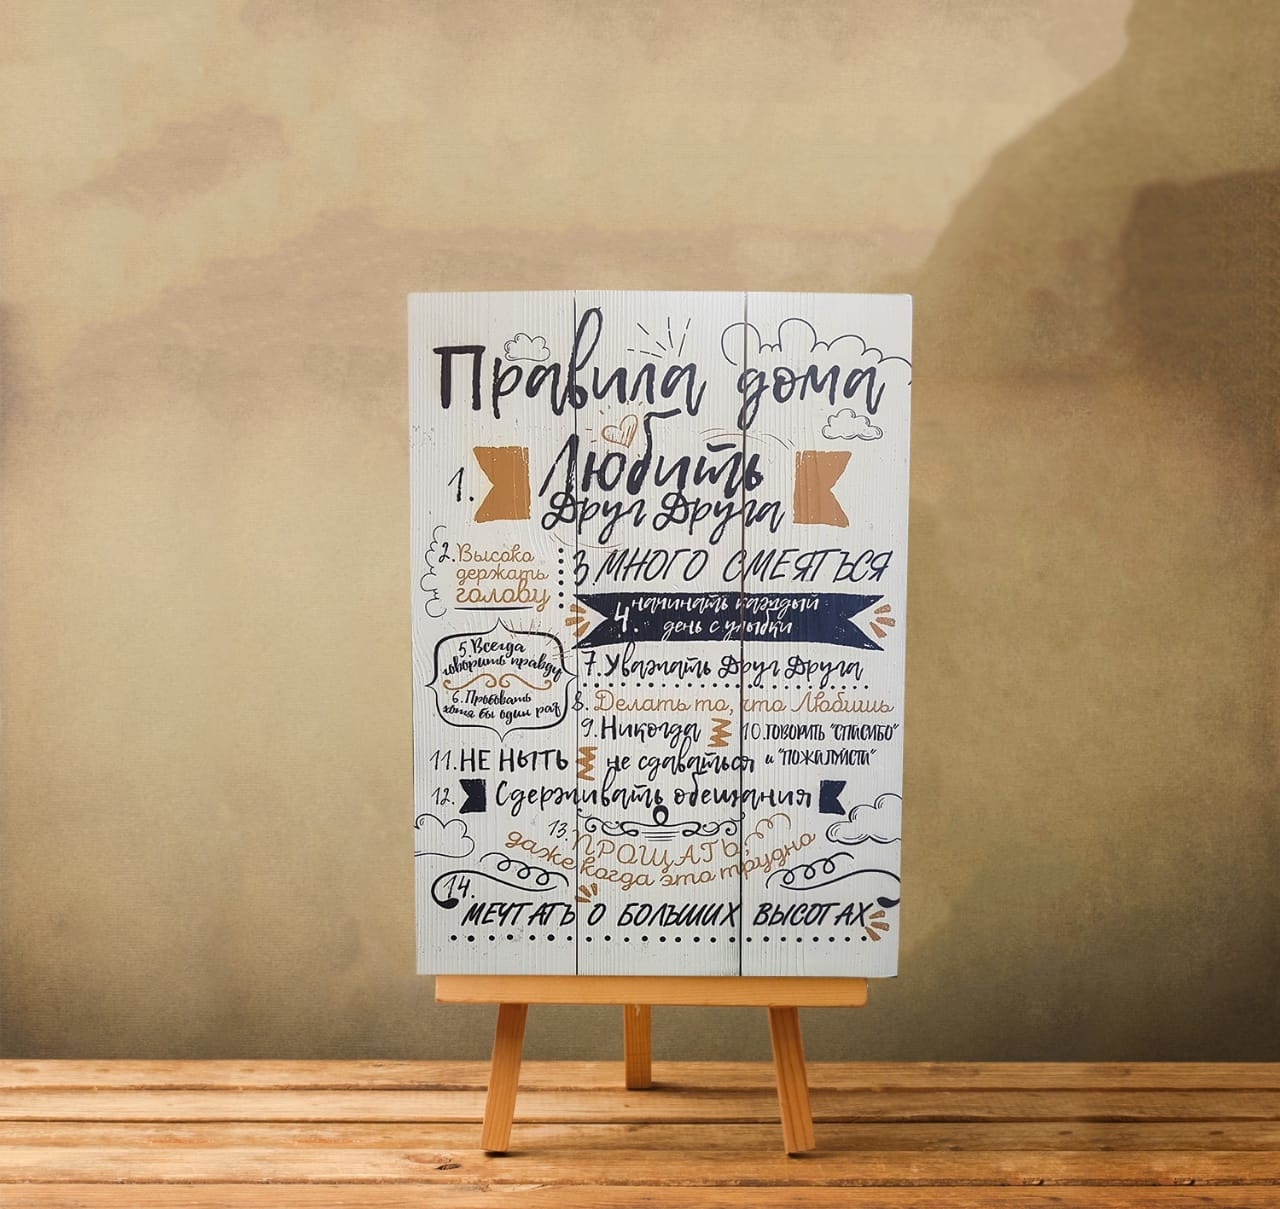 Правила дома
1. Любить
Друг Друга
2. Высоко
держать
голову
3. МНОГО СМЕЯТЬСЯ
4. начинать каждый
день с улыбки
5. Всегда
говорить правду
6. Пробовать
хотя бы один раз
7. Уважать Друг Друга
8. Делать то, что Любишь
9. Никогда
не сдаваться
10. ГОВОРИТЬ "СПАСИБО"
и "ПОЖАЛУЙСТА"
11. НЕ НЫТЬ
12. Сдерживать обещания
13. ПРОЩАТЬ,
даже когда это трудно
14.
МЕЧТАТЬ О БОЛЬШИХ ВЫСОТАХ